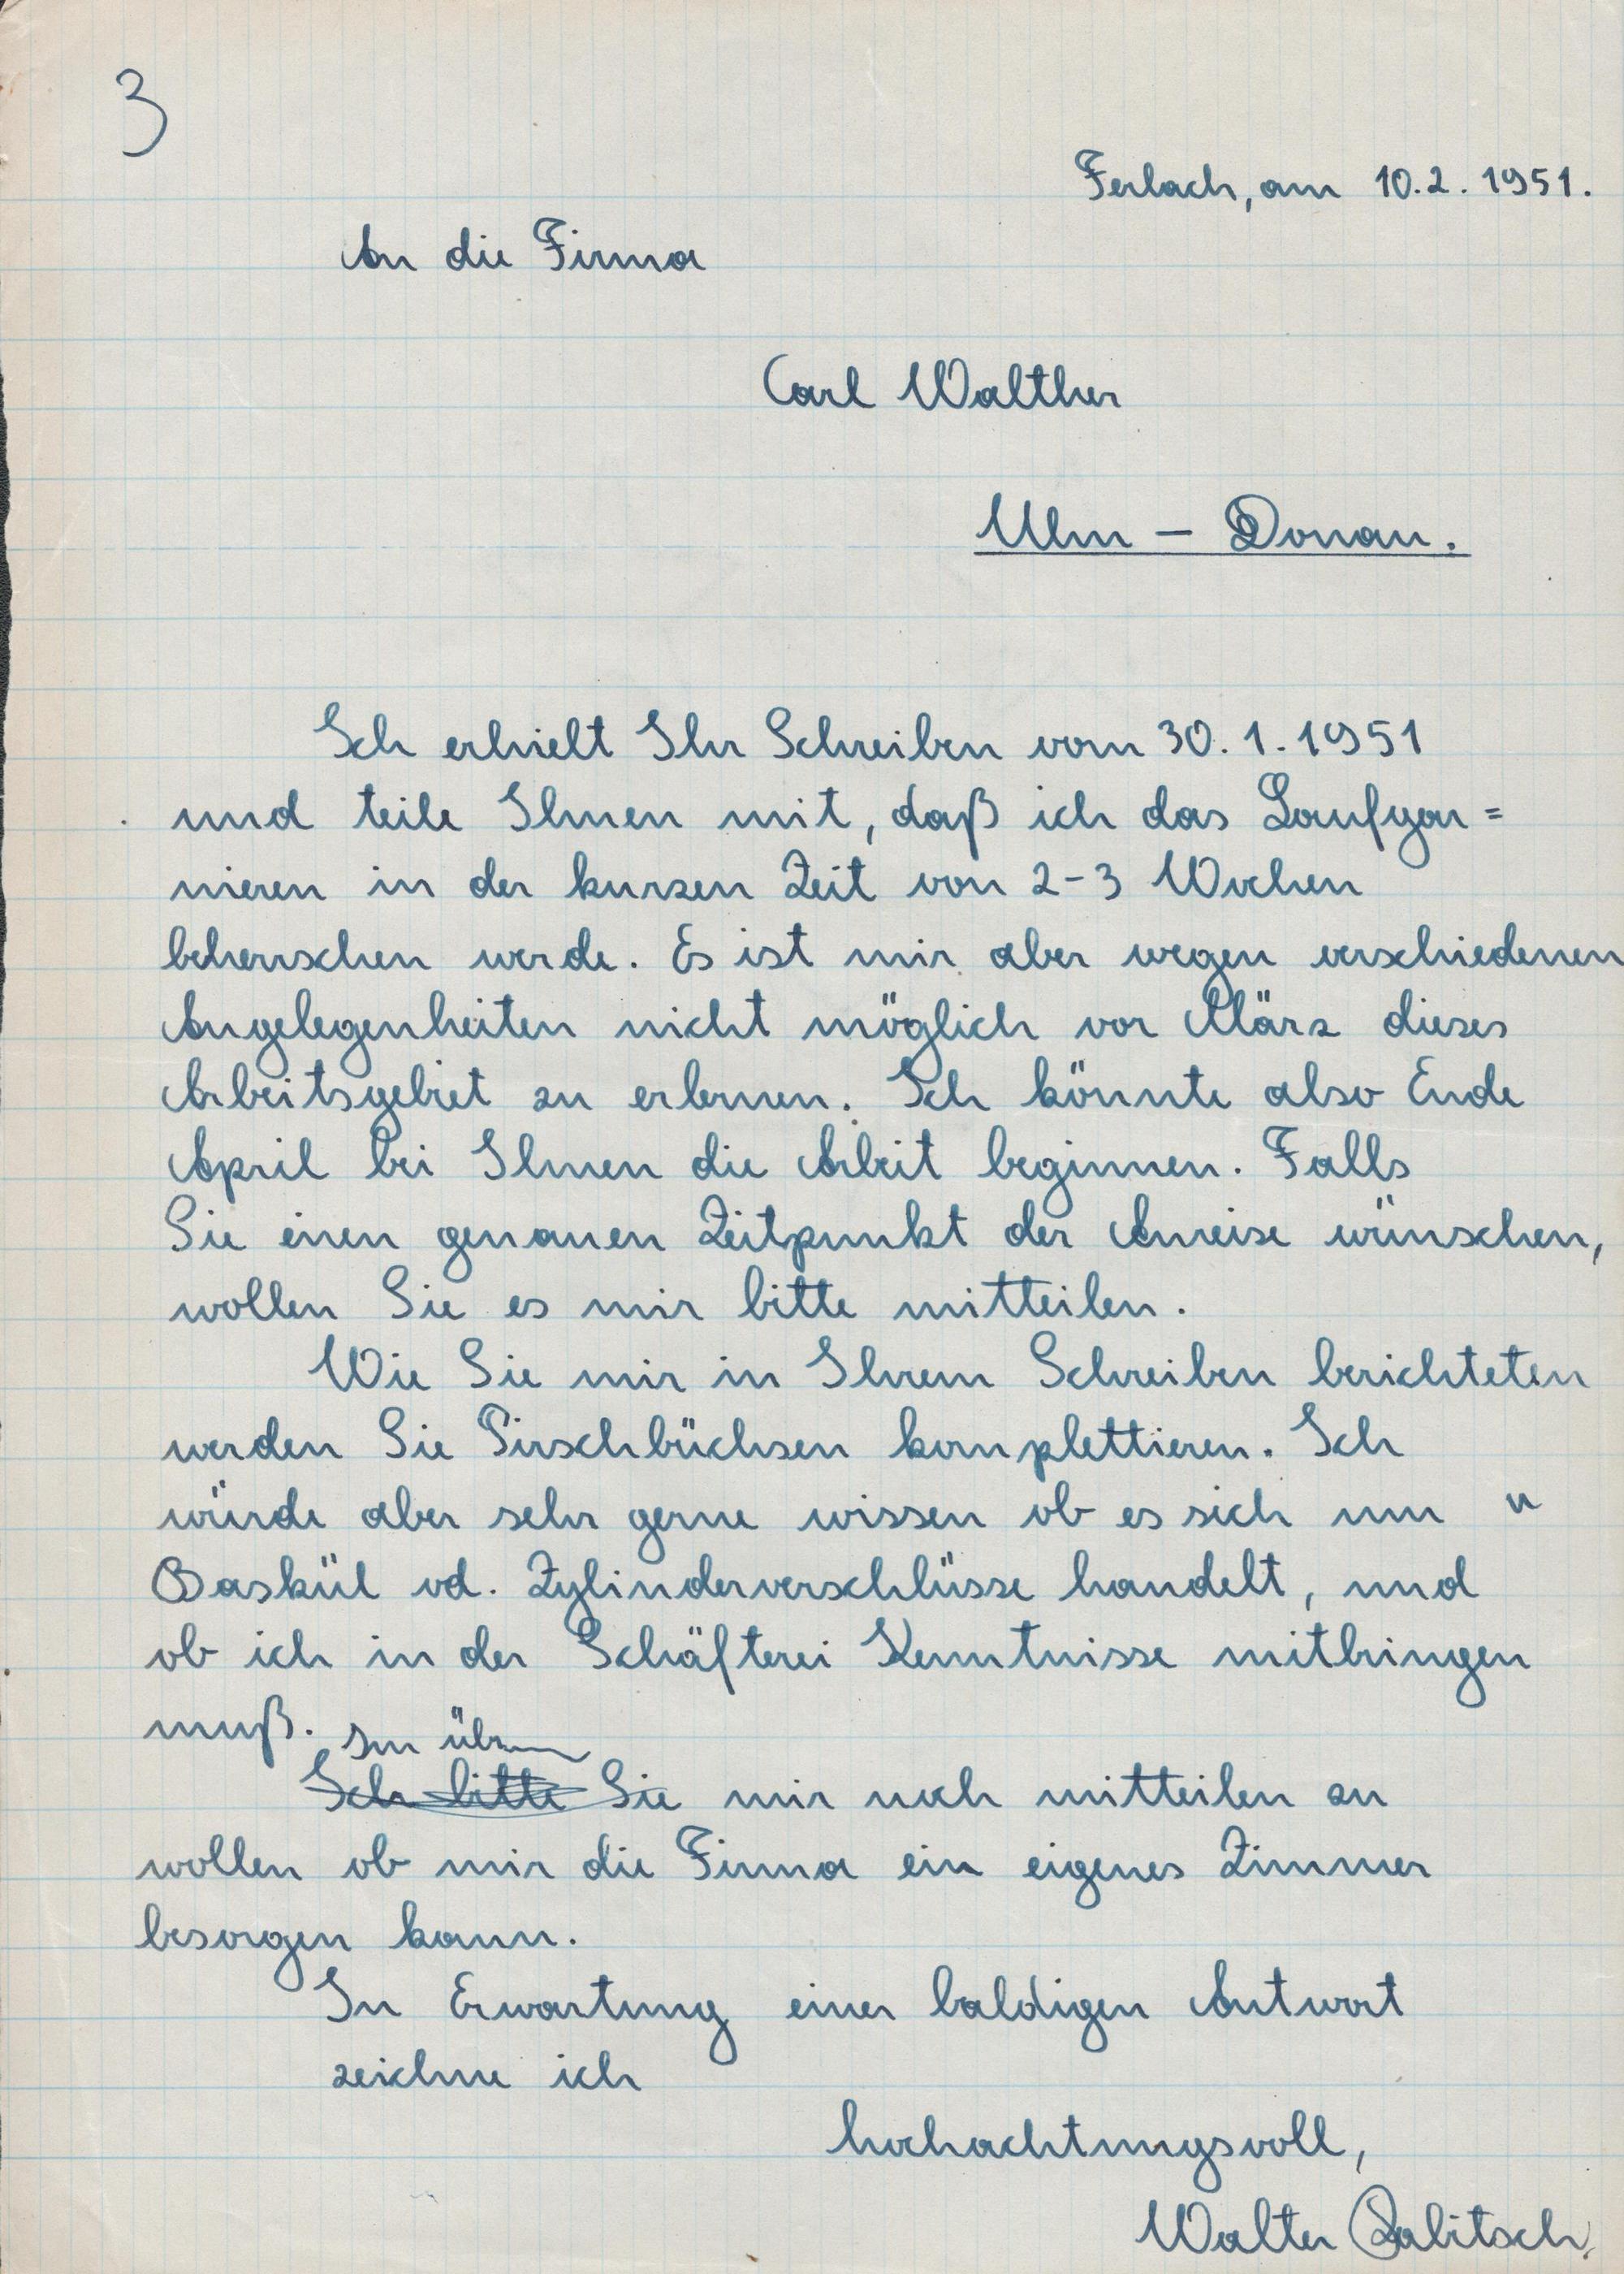 3
Ferlach, am 10.2.1951.
An die Firma
Carl Walther
Ulm - Donau.
Ich erhielt Ihr Schreiben vom 30.1.1951
und teile Ihnen mit, daß ich das Laufgar=
nieren in der kurzen Zeit von 2-3 Wochen
beherrschen werde. Es ist mir aber wegen verschiedenen
Angelegenheiten nicht möglich vor März dieses
Arbeitsgebiet zu erlernen. Ich könnte also Ende
April bei Ihnen die Arbeit beginnen. Falls
Sie einen genauen Zeitpunkt der Anreise wünschen,
wollen Sie es mir bitte mitteilen.
Wie Sie mir in Ihrem Schreiben berichteten
werden Sie Pirschbüchsen komplettieren. Ich
würde aber sehr gerne wissen ob es sich um "
Baskül od. Zylinderverschlüsse handelt, und
ob ich in der Schäfterei Kenntnisse mitbringen
muß.
Ich bitte Sie mir noch mitteilen zu
wollen ob mir die Firma ein eigenes Zimmer
besorgen kann.
In Erwartung einer baldigen Antwort
zeichne ich
hochachtungsvoll,
Walter